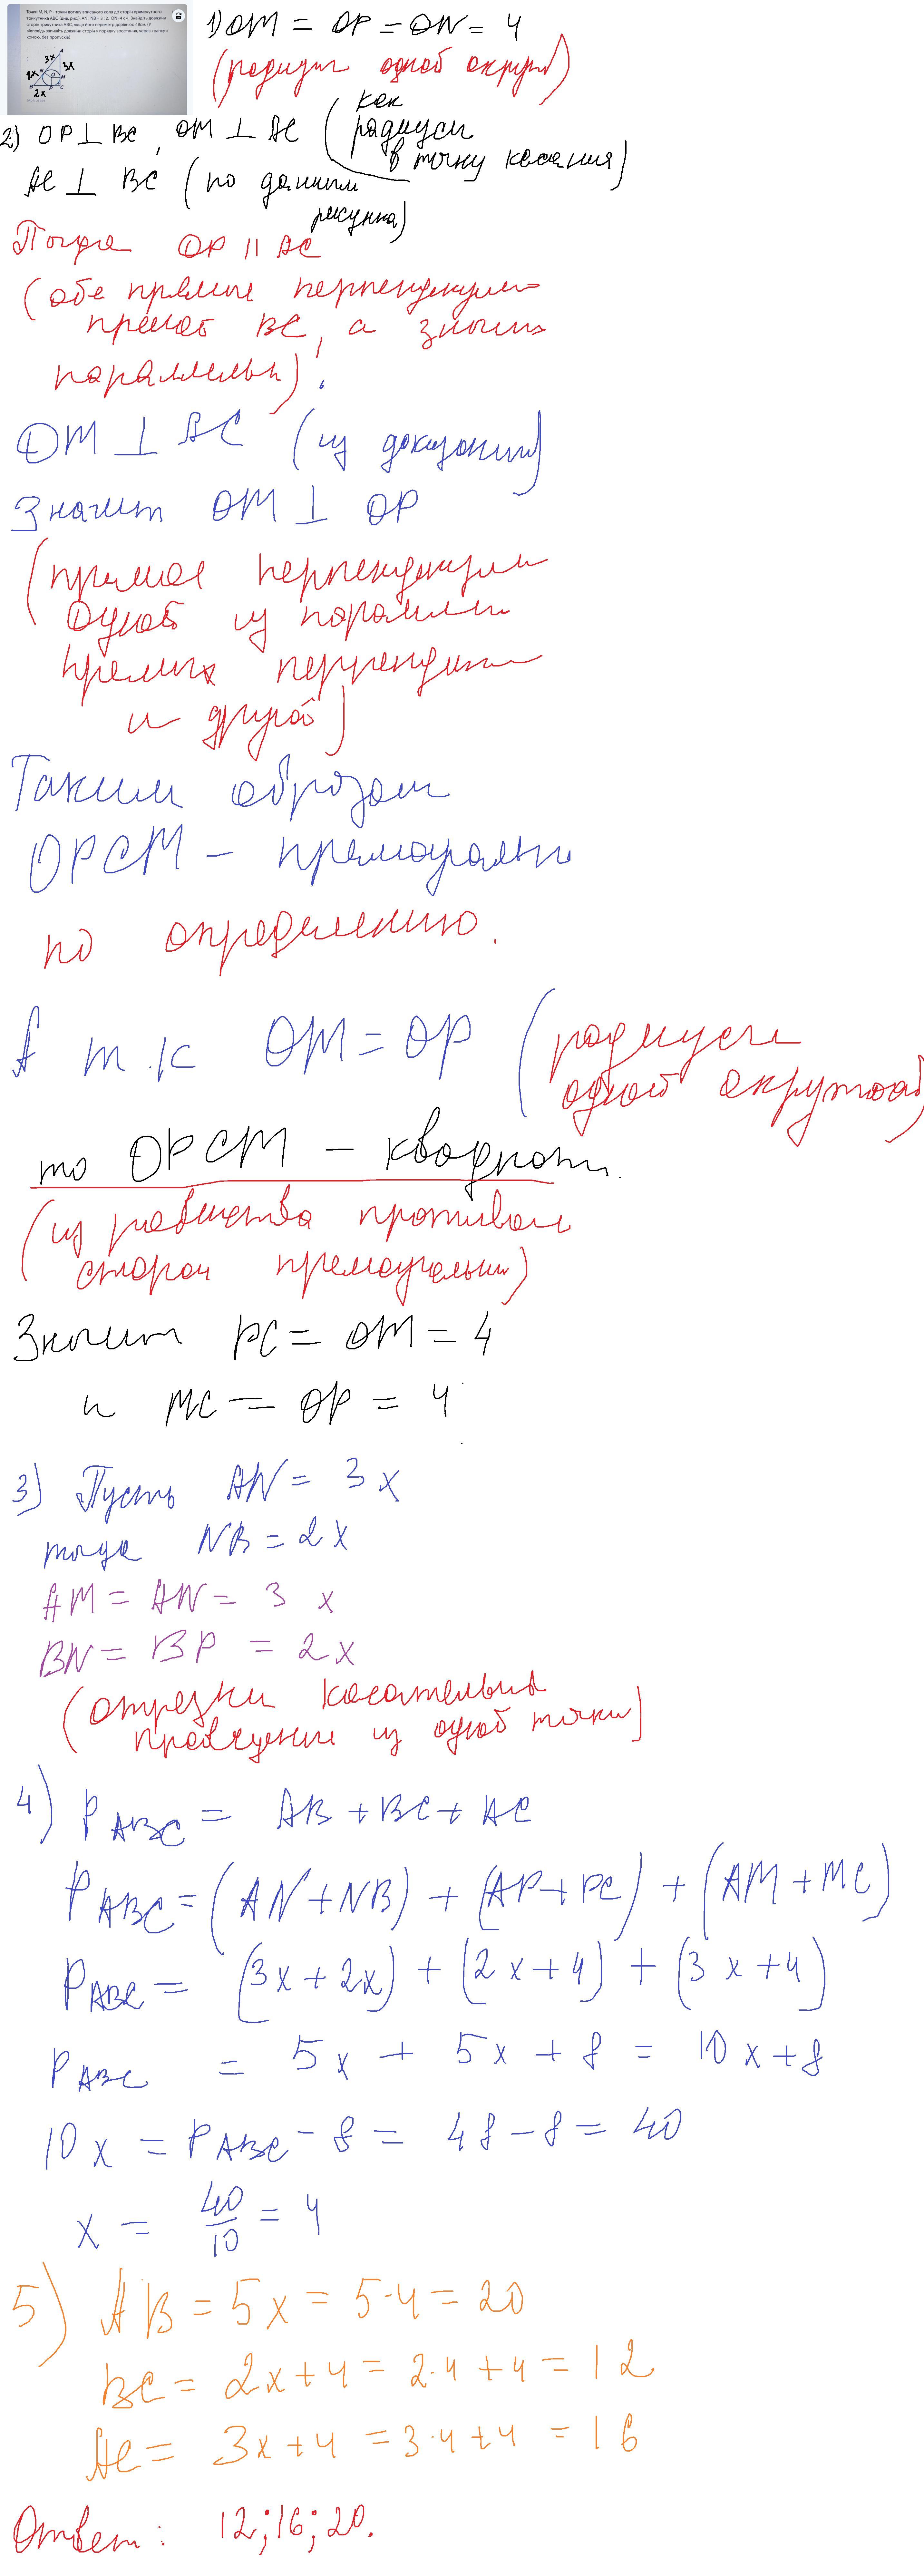 Точки M, N, P – точки дотику вписаного кола до сторін прямокутного
трикутника ABC (див. рис.). AN : NB = 3 : 2, ON=4 см. Знайдіть довжини
сторін трикутника ABC, якщо його периметр дорівнює 48см. (У
відповідь запишіть довжини сторін у порядку зростання через крапку з
комою, без пропусків)
3x
3x
2x
2x
1) OM = OP = ON = 4
(радиусы одной окруж)
2) OP ⊥ BC, OM ⊥ AC (как
радиусы
в точку касания)
AC ⊥ BC (по данным
рисунка)
Тогда OP || AC
(обе прямые перпендикул
прямой BC, а значит
параллельн)
OM ⊥ AC (из доказанн)
Значит OM ⊥ OP
(прямая перпендикул
одной из паралл
прямых перпендик
и другой)
Таким образом
OPCM – прямоугольн
по определению.
А т.к OM = OP (радиусы
одной окружно)
то OPCM – квадрат.
(из равенства противоп
сторон прямоугольн)
Значит PC = OM = 4
и MC = OP = 4
3) Пусть AN = 3x
тогда NB = 2x
AM = AN = 3 x
BN = BP = 2x
(отрезки касательных
проведение из одной точки)
4) P ABC = AB + BC + AC
P ABC = (AN + NB) + (AP + PC) + (AM + MC)
P ABC = (3x + 2x) + (2x + 4) + (3x + 4)
P ABC = 5x + 5x + 8 = 10x + 8
10x = P ABC - 8 = 48 - 8 = 40
x = 40/10 = 4
5) AB = 5x = 5·4 = 20
BC = 2x + 4 = 2·4 + 4 = 12
AC = 3x + 4 = 3·4 + 4 = 16
Ответ: 12;16;20.